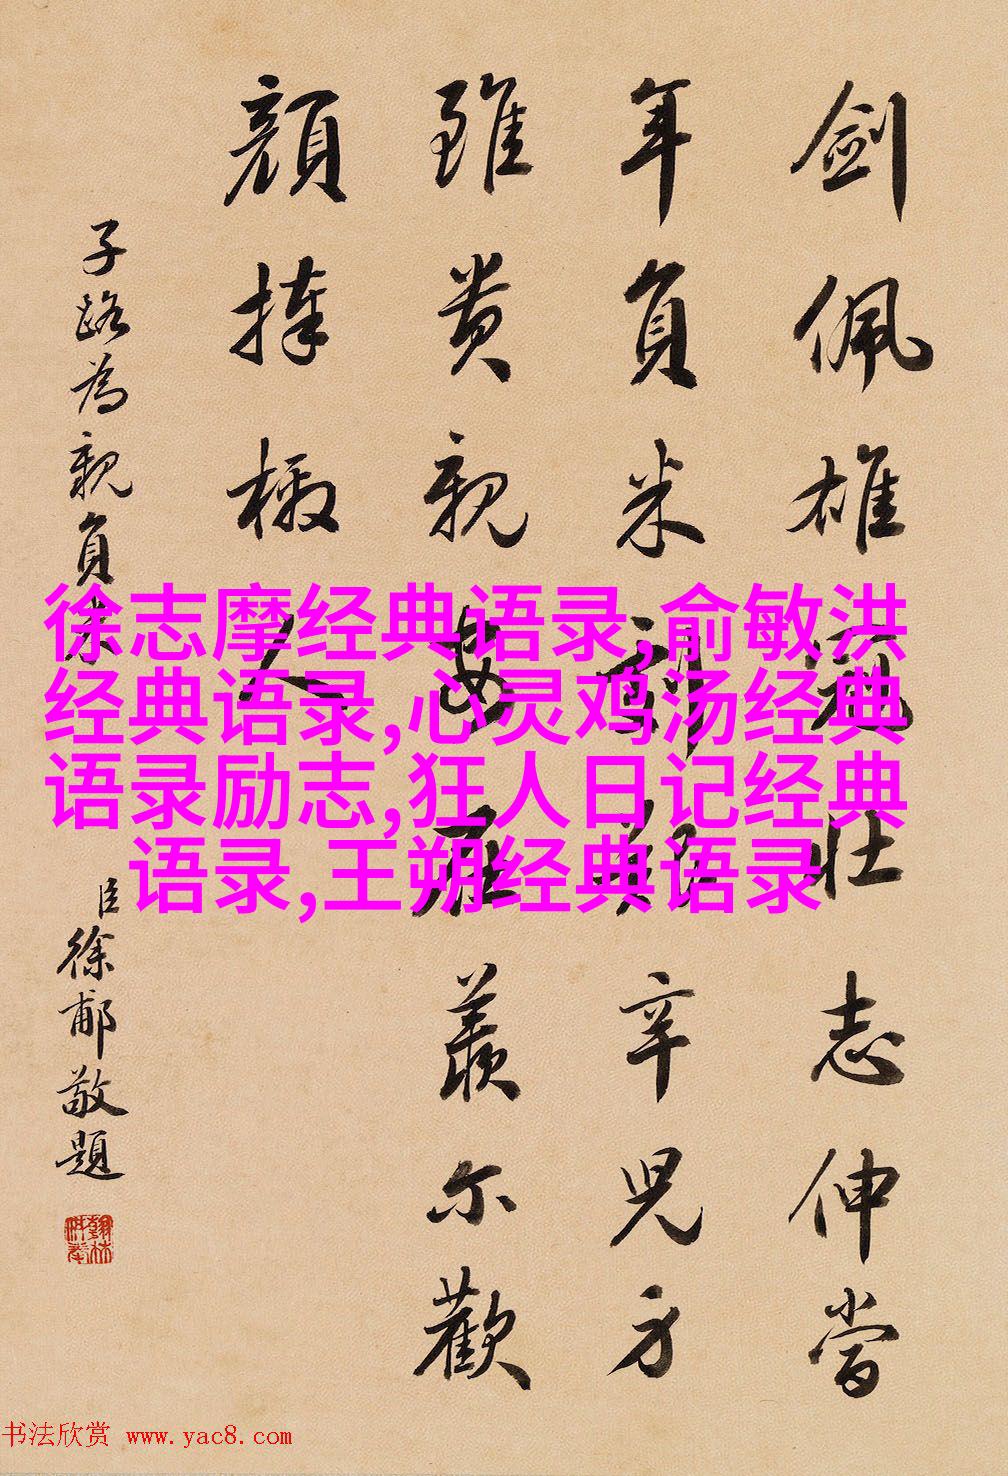 劍佩雄冠壯志伸當
年負米劇艱辛兒方
雖貴親安在羨尔歡
顏捧檄人
子路為親負米
臣徐郙敬題
徐志摩经典语录,俞敏洪
经典语录,心灵鸡汤经典
语录励志,狂人日记经典
语录,王朔经典语录
书法欣赏 www.yac8.com